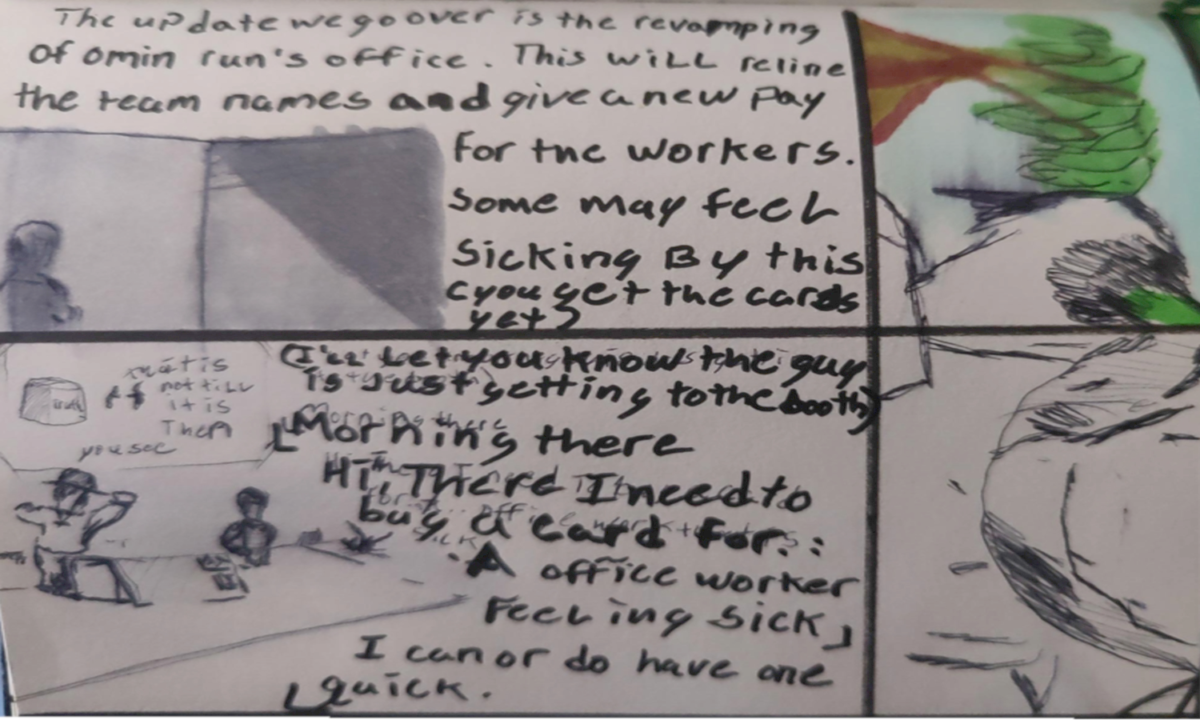 The update we go over is the revamping
of omin run's office. This will reline
the team names and give a new pay
for the workers.
Some may feel
sicking By this
(you get the cards
yet)
(I'll Let you know the guy
is Just getting to the booth)
that is
not till
it is
Then
you see
truth
Morning there
Hi, There I need to
buy a card for.:
A office worker
Feeling sick
I can or do have one
quick.